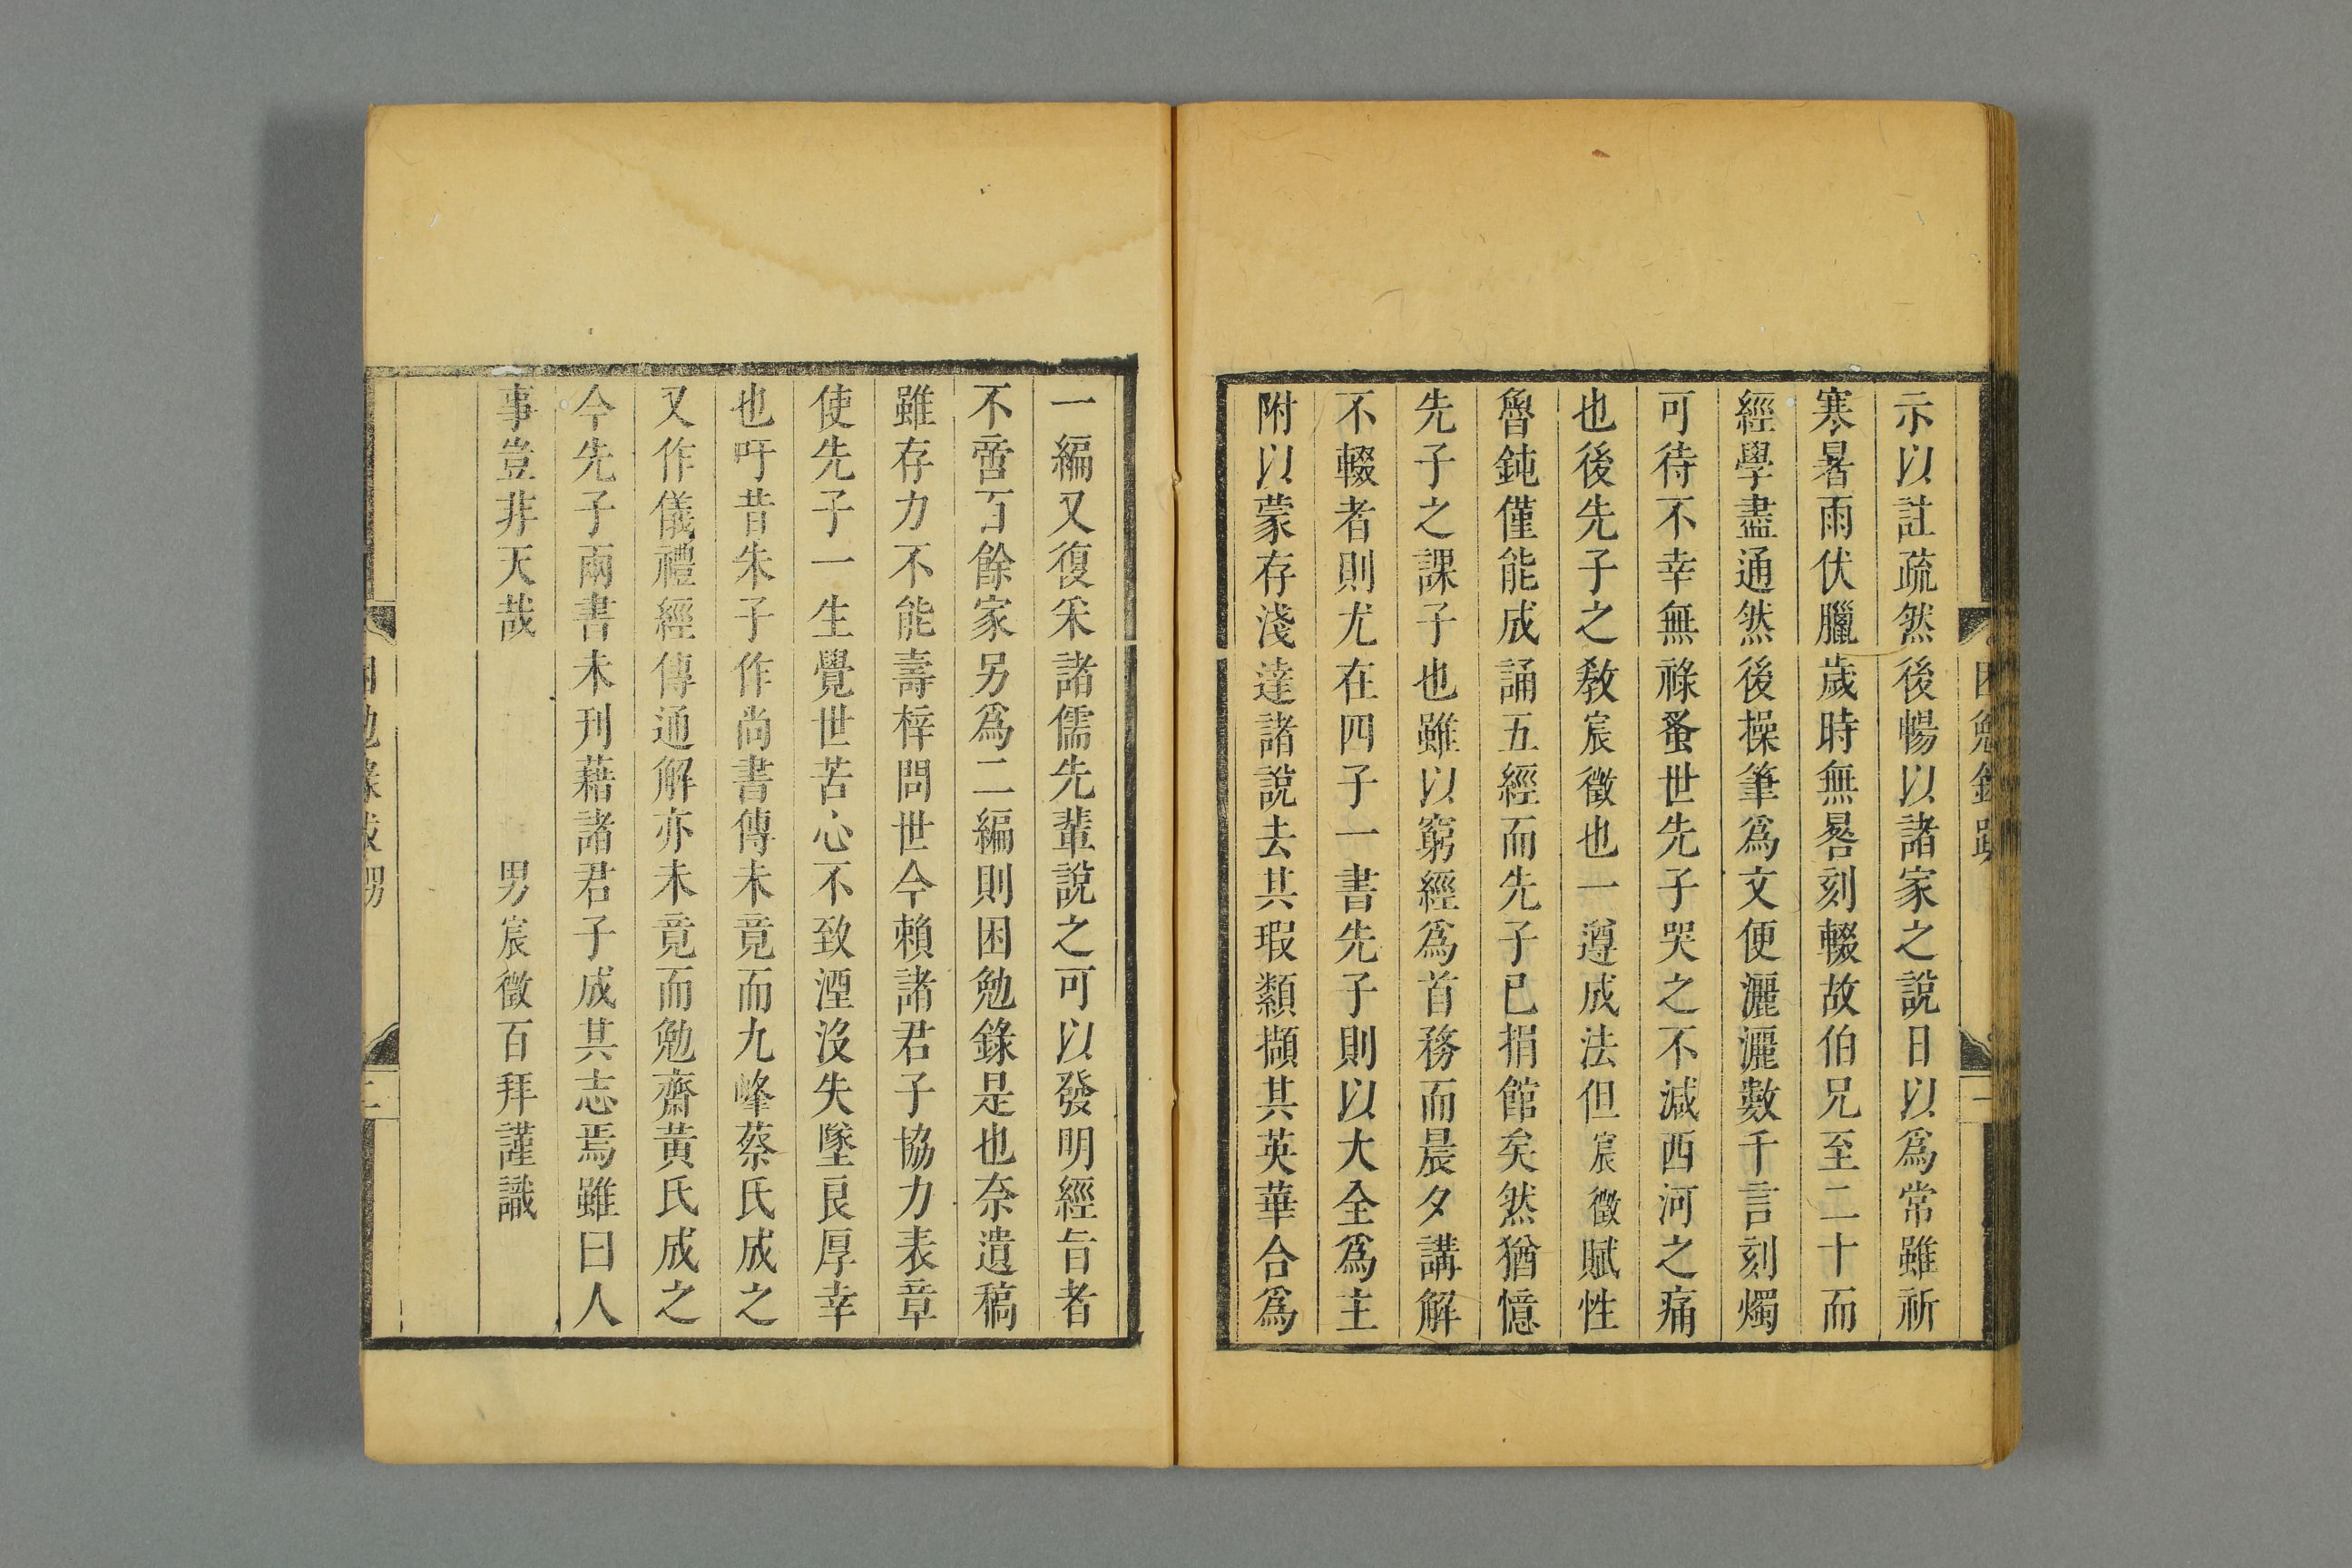 示以註疏然後暢以諸家之說日以爲常雖祈
寒暑雨伏臘歲時無晷刻輟故伯兄至二十而
經學盡通然後操筆爲文便灑灑數千言刻燭
可待不幸無祿蚤世先子哭之不減西河之痛
也後先子之敎宸徵也一遵成法但宸徵賦性
魯鈍僅能成誦五經而先子已捐館矣然猶憶
先子之課子也雖以窮經爲首務而晨夕講解
不輟者則尤在四子一書先子則以大全爲主
附以蒙存淺達諸說去其瑕纇擷其英華合爲
一編又復采諸儒先輩說之可以發明經旨者
不啻百餘家另爲二編則困勉錄是也奈遺稿
雖存力不能壽梓問世今賴諸君子協力表章
使先子一生覺世苦心不致湮沒失墜良厚幸
也吁昔朱子作尚書傳未竟而九峰蔡氏成之
又作儀禮經傳通解亦未竟而勉齋黃氏成之
今先子兩書未刊藉諸君子成其志焉雖曰人
事豈非天哉
男宸徵百拜謹識